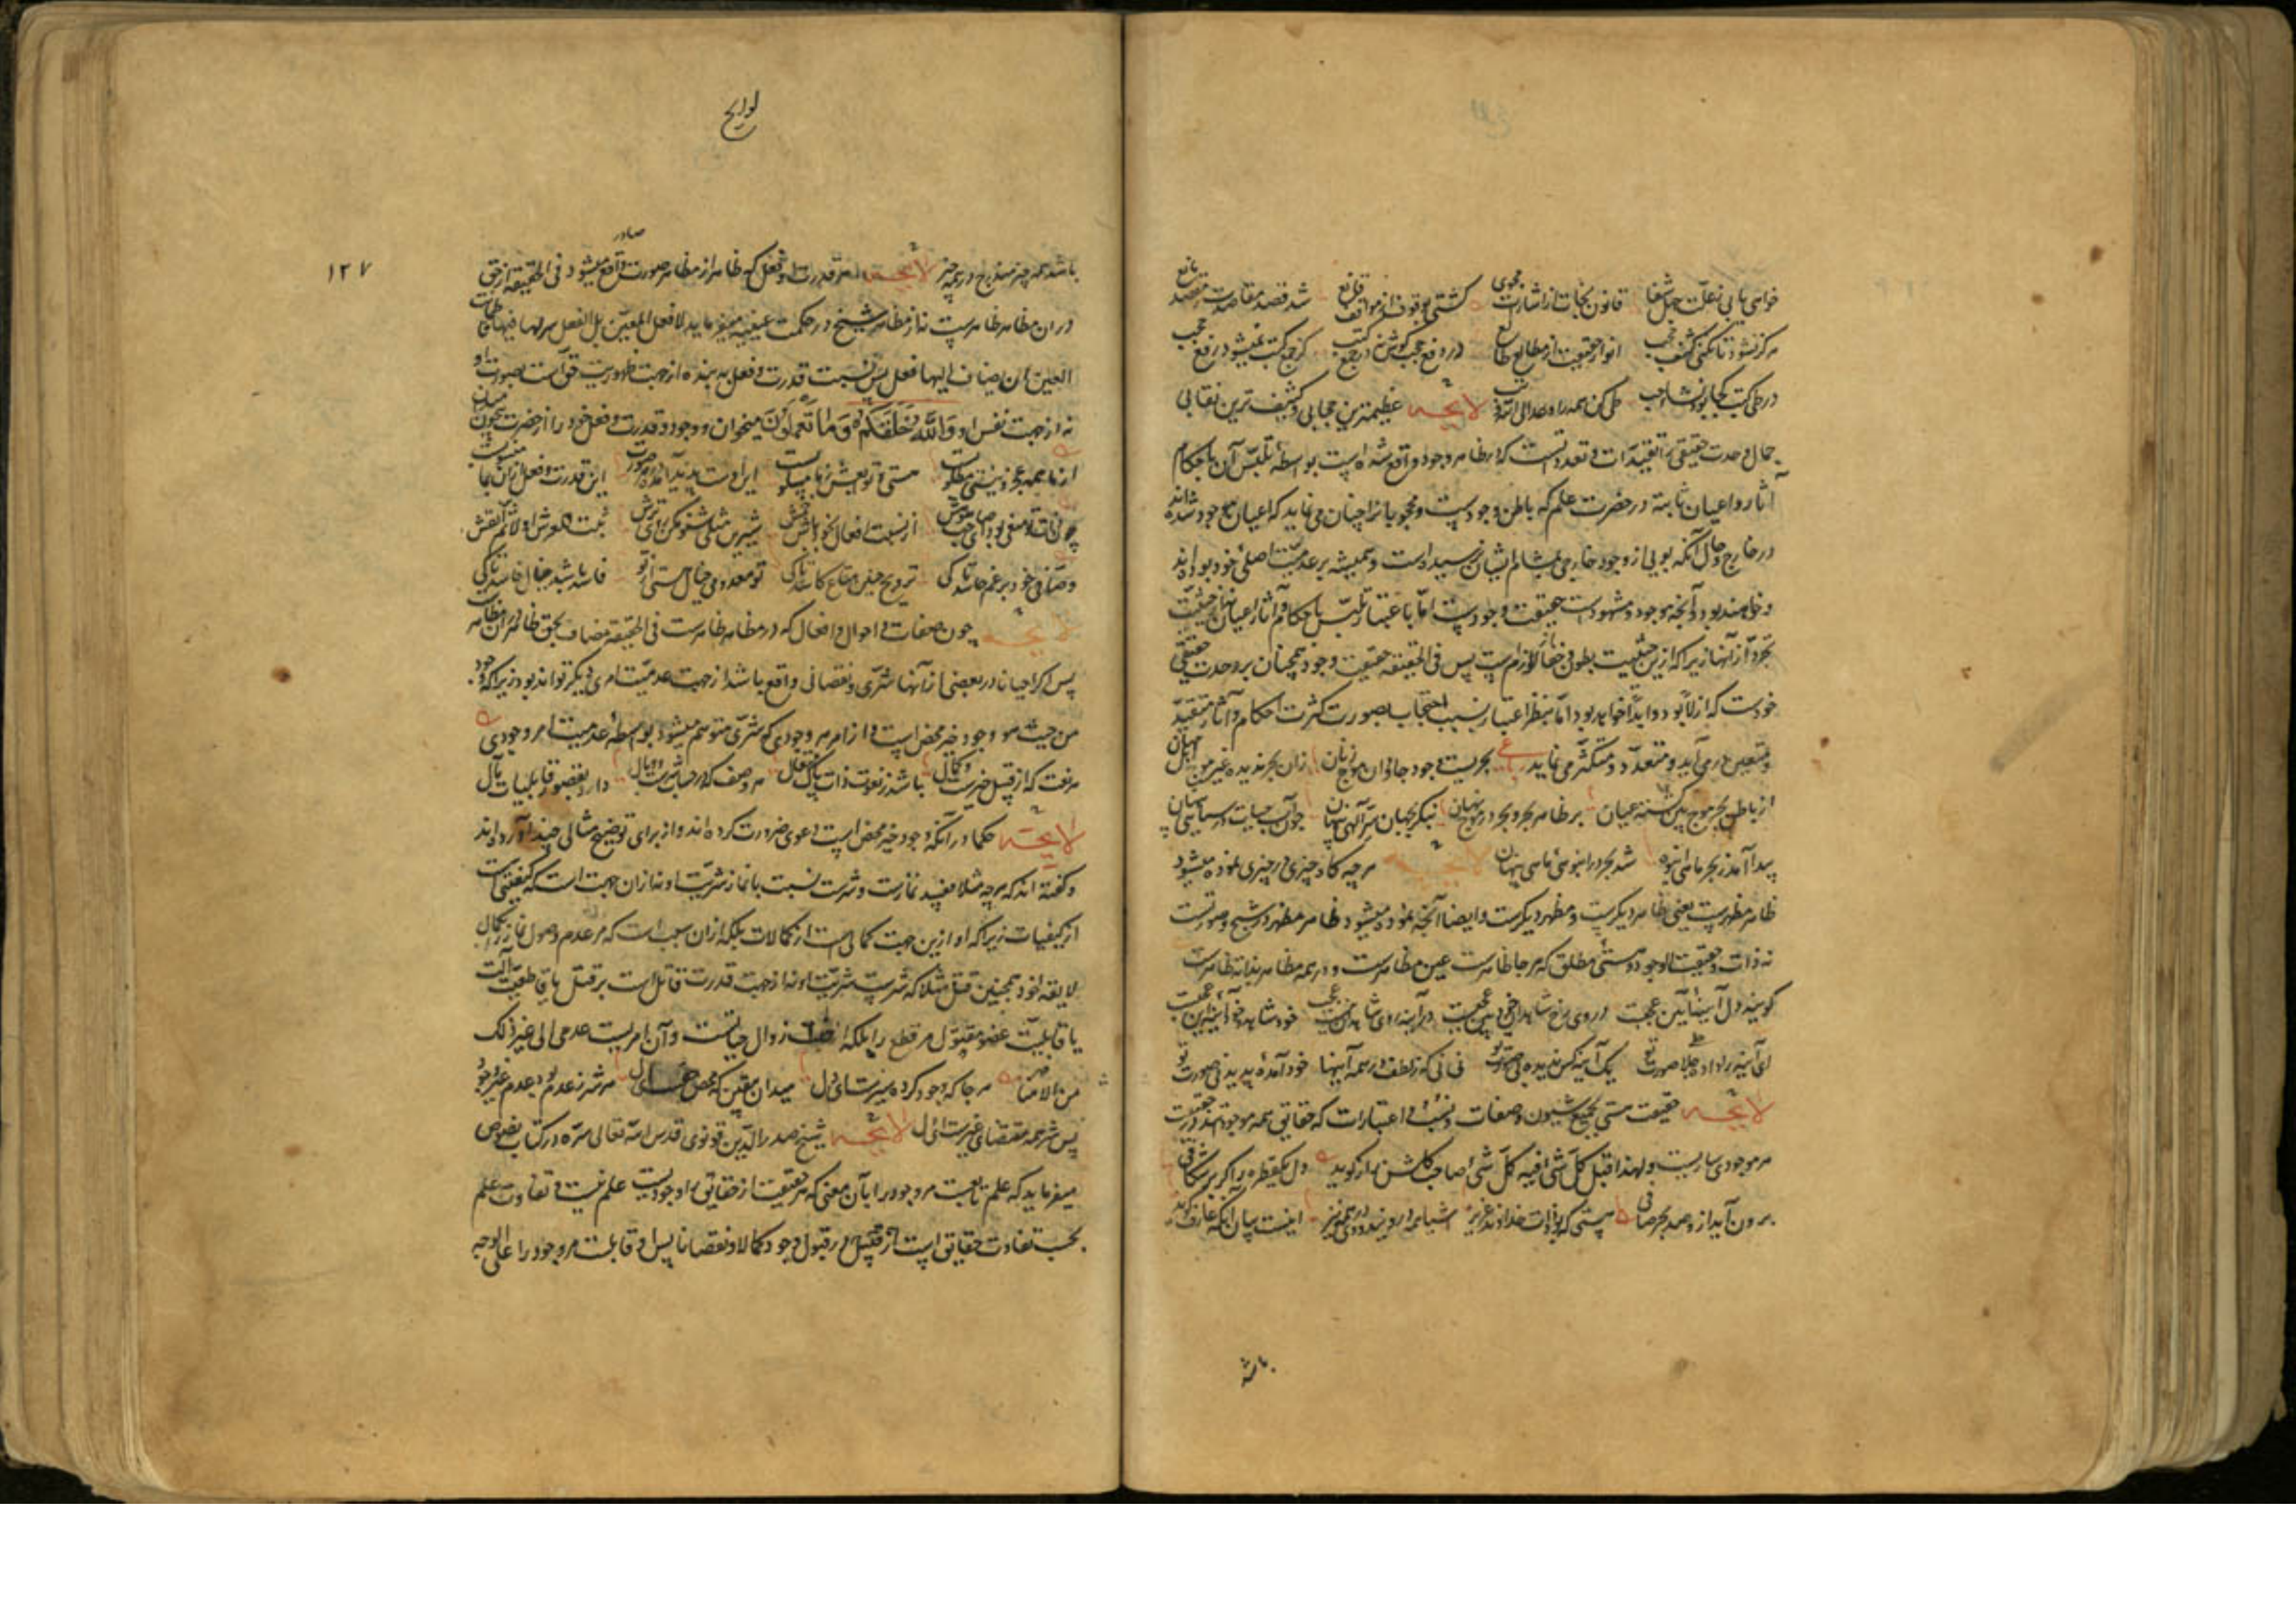 خواهی یابی ز علت جهل شفا قانون نجات از اشارات مجوی کشتی بوقوف از مواقف قانع شد قصد مقاصدت ز مقصد مانع
هرگز نشود تا نکنی کشف حجب انوار حقیقت از مطالع طالع در رفع حجب کوش نه در جمع کتب کز جمع کتب نمیشود رفع حجب
در طی کتب کجا بود نشأه حب طی کن همه را و عد الی الله و تب لایحه عظیمترین حجابی و کثیف ترین نقابی
جمال وحدت حقیقی را تقییدات و تعدداتست که در ظاهر وجود واقع شده است بواسطه تلبس آن باحکام
و آثار اعیان ثابته در حضرت علم که باطن وجود است و محجوبانرا چنان می نماید که اعیان موجود شده اند
در خارج و حال آنکه بویی از وجود خارجی بمشام ایشان نرسیده است و همیشه بر عدمیت اصلی خود بوده اند
و خواهند بود و آنچه موجود و مشهودست حقیقت وجود است اما باعتبار تلبس باحکام و آثار اعیان نه از حیثیت
تجرد از آنها زیرا که ازین حیثیت بطون و خفا از لوازم اوست پس فی الحقیقه حقیقت وجود همچنان بر وحدت حقیقی
خودست که ازلا بود و ابدا خواهد بود اما بنظر اغیار بسبب احتجاب بصورت کثرت احکام و آثار متقید
و متعین در می آید و متعدد و متکثر می نماید رباعی بحریست وجود جاودان موج زنان زان بحر ندیده غیر موج اهل جهان
از باطن بحر موج بین گشته عیان بر ظاهر بحر و بحر در موج نهان بنگر بجهان سر آلهی پنهان چون آب حیات در سیاهی پنهان
پیدا آمد ز بحر ماهی انبوه شد بحر در انبوهی ماهی پنهان لایحه هرچه گاه چیزی در چیزی نموده میشود
ظاهر مظهرست یعنی ظاهر دیگرست و مظهر دیگرست و ایضا آنچه نموده میشود از ظاهر در مظهر شبح و صورتست
نه ذات و حقیقت الا وجود و هستی مطلق که هرجا ظاهرست عین مظاهرست و در همه مظاهر بذاته ظاهرست
گویند دل آیینه آیین عجبست در وی رخ شاهدان خودبین عجبست در آینه روی شاهدان نیست عجب خود شاهد و خود آینه این عجبست
ای آینه را داده جلا صورت تو یک آینه کس ندیده بی صورت تو نی نی که ز لطف در همه آینها خود آمده پدید نی صورت تو
لایحه حقیقت هستی بجمیع شیون و صفات و نسب و اعتبارات که حقایق همه موجوداتند در حقیقت
هر موجودی ساریست و لهذا قیل کل شی فیه کل شی صاحب گلشن راز گوید دل یک قطره را گر بر شکافی
برون آید ازو صد بحر صافی هستی که بود ذات خداوند عزیز اشیا همه در وی اند و وی در همه نیز اینست بیان آنکه عارف گوید
باشد
لوایح
۱۲۷
باشد همه چیز مندرج در همه چیز لایحه هر قدرت و فعل که ظاهر از مظاهر صورت واقع میشود فی الحقیقه از حق
صادر
در ان مظاهر ظاهرست نه از مظاهر شیخ در حکمت عینیه میفرماید لا فعل للعین بل الفعل لربها فیها فاطمانت
العین ان یضاف الیها فعل پس نسبت قدرت و فعل به بنده از جهت ظهور حق است بصورت او
نه از جهت نفس او والله خلقکم وما تعملون میخوان و وجود و قدرت و فعل خود را از حضرت بیچون میدان
از ما همه عجز و نیستی مطلوبست هستی و توابعش ز ما مسلوبست این اوست پدید آمده در صورت ما این قدرت و فعل ازان بما منسوبست
چون ذات تو منفی بود ای صاحب هش از نسبت افعال بخود باش خمش شیرین مثلی شنو مکن روی ترش ثبت العرش اولا ثم انقش
وصافی خود برغم حاسد تا کی ترویج چنین متاع کاسد تا کی تو معدومی خیال هستی از تو فاسد باشد خیال فاسد تا کی
لایحه چون صفات و احوال و افعال که در مظاهر ظاهرست فی الحقیقه مضاف بحق ظاهر در ان مظاهرست
پس اگر احیانا در بعضی از آنها شری و نقصانی واقع باشد از جهت عدمیت امری دیگر تواند بود زیرا که وجود
من حیث هو وجود خیر محض است و از هر امر وجودی که شری متوهم میشود بواسطه عدمیت امر وجودی
هر نعت که از قبیل خیرست و کمال باشد ز نعوت ذات پاک متعال هر وصف که در حساب شرست و وبال دارد بقصور قابلیات مآل
لایحه حکما در آنکه وجود خیر محض است دعوی ضرورت کرده اند و از برای توضیح مثالی چند آورده اند
و گفته اند که برد مثلا مفسد ثمارست و شرست نسبت با ثمار شریت او نه ازان جهت است که کیفیتی است
از کیفیات زیرا که او ازین جهت کمالی است از کمالات بلکه ازان سبب است که هر عدم وصول ثمار را بکمال
لایقه خود همچنین قتل مثلا که شرست شریت او نه از جهت قدرت قاتل است بر قتل یا قاطعیت آلت
یا قابلیت عضو مقتول مر قطع را بلکه از جهت زوال حیاتست و آن امریست عدمی الی غیر ذلک
من الامثله هرجا که وجود کرده سیرست ای دل میدان بیقین که محض خیرست ای دل هر شر ز عدم بود عدم غیر وجود
پس شر همه مقتضای غیرست ای دل لایحه شیخ صدر الدین قونوی قدس الله تعالی سره در کتاب نصوص
میفرماید که علم تابعست مر وجود را بآن معنی که هر حقیقت از حقایق را وجودیست علم نیست و تفاوت علم
بحسب تفاوت حقایق است در قبول وجود کمالا و نقصانا پس آنچه قابلست مر وجود را علی الوجه